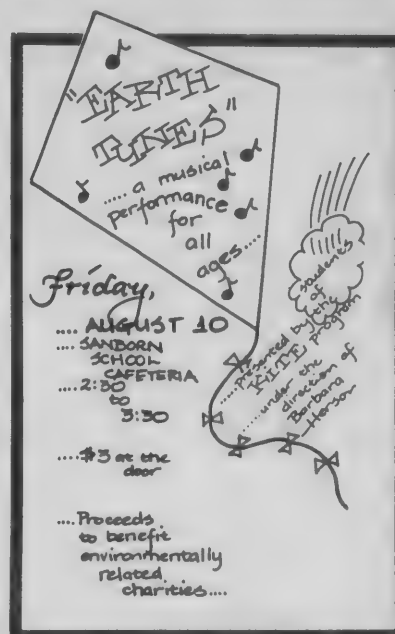 "EARTH
TUNES"
..... a musical
performance
for
all
ages.....
Friday,
.... AUGUST 10
.... SANBORN
SCHOOL
CAFETERIA
....2:30
to
3:30
.....$3 at the
door
.... Proceeds
to benefit
environmentally
related
charities....
....presented by the
students
of
KITE program
.....under the
direction of
Barbara